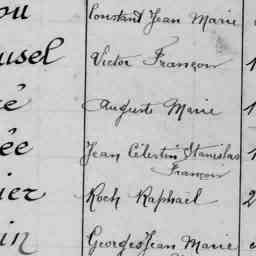 ou Constant Jean Marie
usel Victor Françon
é Auguste Marie
ée Jean Célestin Stanislas
Françon
ier Roch Raphaël 2
in Georges Jean Marie